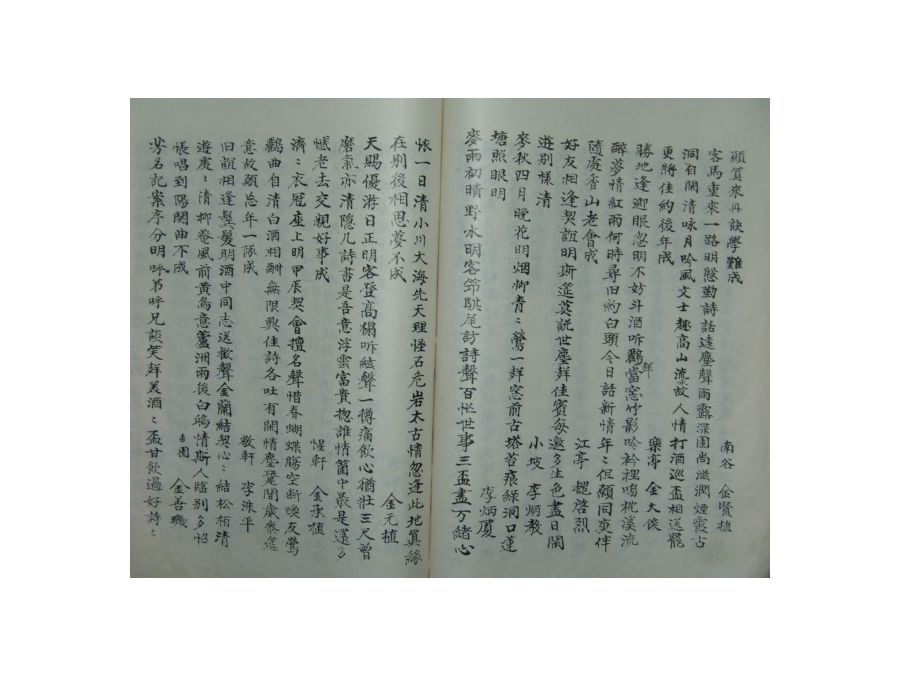 顔賀來再訣學難成
南谷 金賢植
客馬重來一路明慇勤詩話遠塵聲雨露深園尚滋潤煙霞古
洞自開清咏月吟風文士趣高山流故人情打酒巡盃相送罷
更將佳約後年成
樂亭 金大俊
勝地逢迎眼忽明不妨斗酒听鸝當窓竹影吟衿裡鳴枕溪流
群
醉夢情紅雨何時尋旧約白頭今日話新情年〻但願同庚伴
隨處香山老會成
江亭 趙啓烈
好友相逢契誼明斯筵莫說世塵群佳賓每邀多生色盡日閑
遊別樣清
小坡 李炳教
麥秋四月晚花明烟柳青〻鶯一群窓前古塔苔痕綠洞口蓮
塘照眼明
李炳厦
麥雨初晴野水明客笻騏尾訪詩聲百忙世事三盃盡万緒心
恢一日清小川大海先天理怪石危岩太古情忽逢此地眞緣
在別後相思夢不成
金元植
天賜優游日正明客登高榻听絃聲一樽痛飲心猶壯三尺曾
磨氣亦清隱几詩書是吾意浮雲富貴揔誰情箇中最是還多
憾老去交親好事成
惺軒 金承植
濟〻衣冠座上明甲辰契會擅名聲惜春蝴蝶腸空斷喚友鶯
鸝曲自清白酒相酬無限興佳詩各吐有閑情塵寔間歲參筵
意故願忘年一隊成
敬軒 李洙平
旧誼相逢鬂髮明酒中同志送歡聲金蘭結契心〻結松栢清
遊庚〻清柳菴風前黃鳥意蘆洲雨後白鷗情斯人臨別多怊
悵唱到陽関曲不成
吉圃 金善璣
芳名記案序分明呼弟呼兄談笑群美酒〻盃甘飲過好詩〻